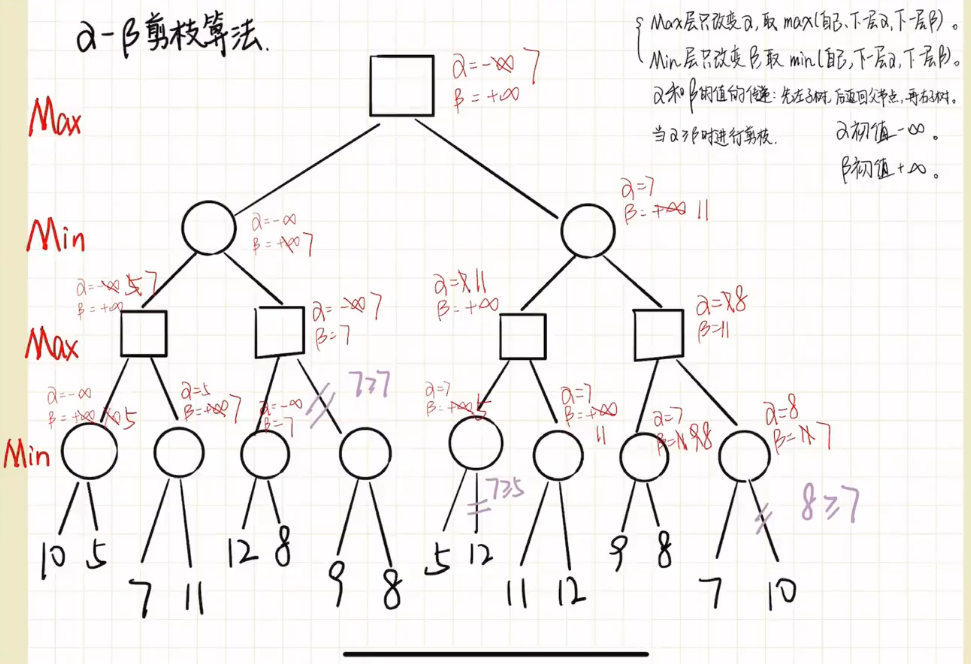 α-β剪枝算法.
Max层只改变α,取max(自己、下一层α,下一层β)。
Min层只改变β,取min(自己,下一层α,下一层β)。
α和β的值的传递:先左子树,后返回父节点,再右子树。
当α≥β时进行剪枝.
α初值-∞。
β初值+∞。
Max
α=-∞ 7
β=+∞
Min
α=-∞
β=+∞ 7
α=7
β=+∞ 11
Max
α=-∞ 5 7
β=+∞
α=-∞ 7
β=7
α=7 11
β=+∞
α=7 8
β=11
7≥7
Min
α=-∞
β=+∞ 10 5
α=5
β=+∞ 7
α=-∞
β=7
α=7
β=+∞ 5
α=7
β=+∞
11
α=7
β=11 9 8
α=8
β=11 7
7≥5
8≥7
10 5
7 11
12 8
9 8
5 12
11 12
9 8
7 10